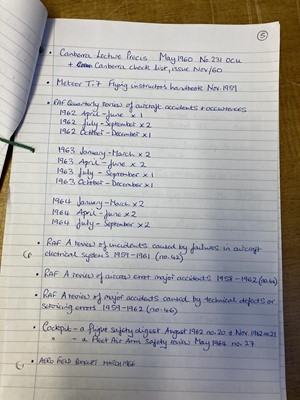 5
• Canberra Lecture Precis May 1960 No. 231 OCU
+ Canberra check list, issue Nov/60
• Meteor T.7 Flying instructors handbook Nov 1951
• RAF Quarterly review of aircraft accidents + occurrences
1962 April - June x 1
1962 July - September x 2
1962 October - December x1
1963 January - March x 2
1963 April - June x 2
1963 July - September x 1
1963 October - December x1
1964 January - March x 2
1964 April - June x 2
1964 July - September x 2
• RAF A review of incidents caused by failures in aircraft
electrical systems 1959-1961 (no.42)
• RAF A review of aircrew error major accidents 1958-1962
• RAF A review of major accidents caused by technical defects or
servicing errors 1959-1962 (no.46)
• Cockpit - a flight safety digest August 1962 no.20 + Nov 1962 no.21
" - a Fleet Air Arm safety review May 1964 no. 27
MARCH 1966